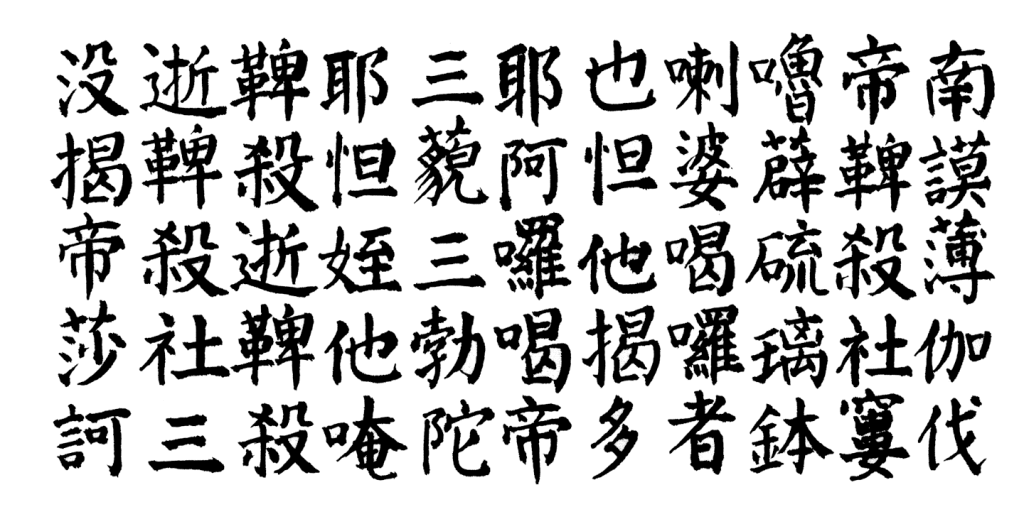 南謨薄伽伐
帝鞞殺社窶
嚕薜硫璃鉢
喇婆喝囉者
也怛他揭多
耶阿囉喝帝
三藐三勃陀
耶怛姪他唵
鞞殺逝鞞殺
逝鞞殺社三
没揭帝莎訶